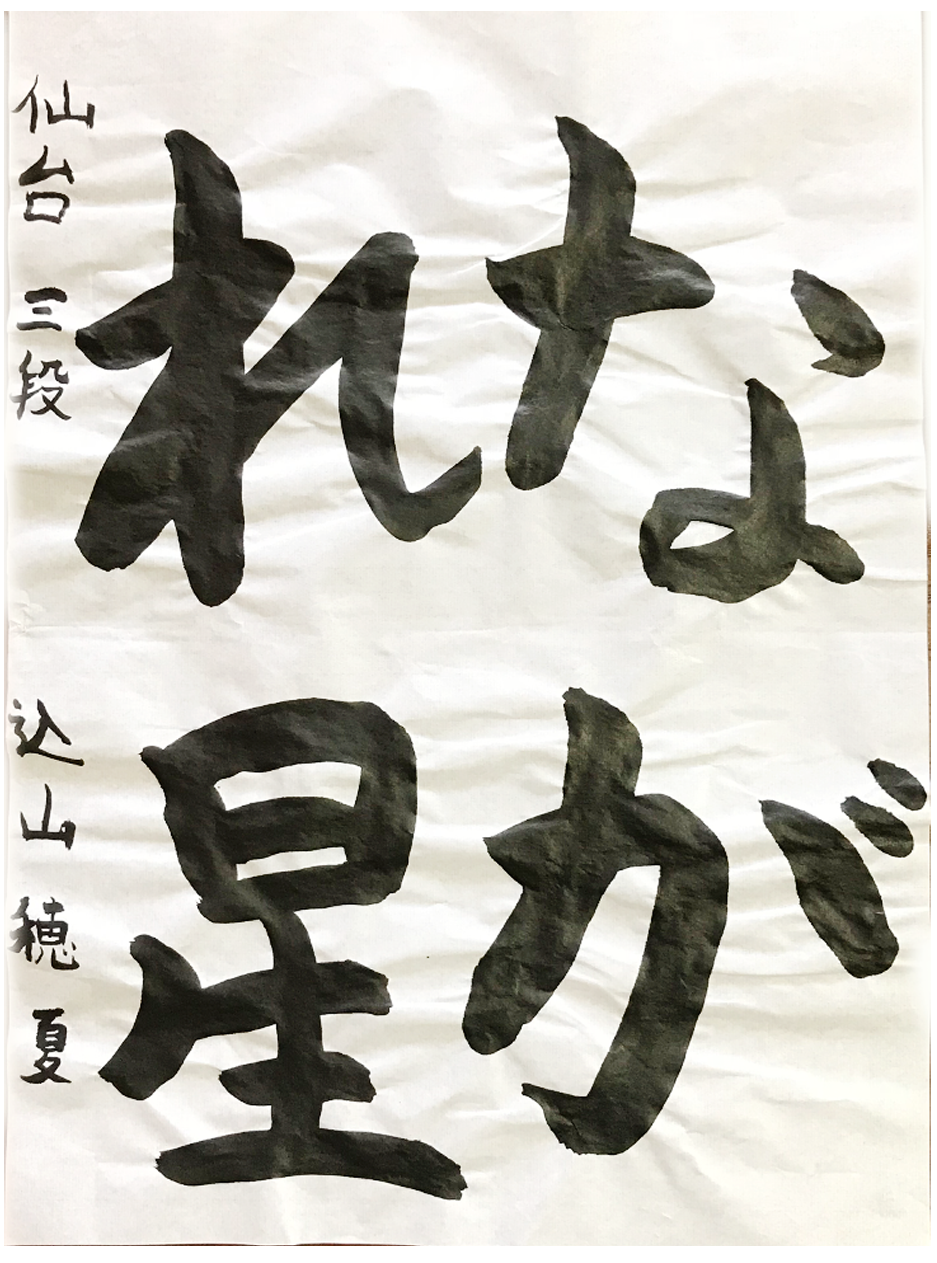 なが
れ星
仙台 三段 込山 穂夏